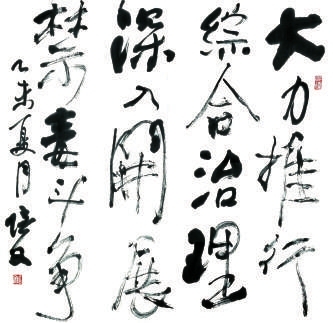 大力推行
综合治理
深入開展
禁毒斗争
乙未夏月